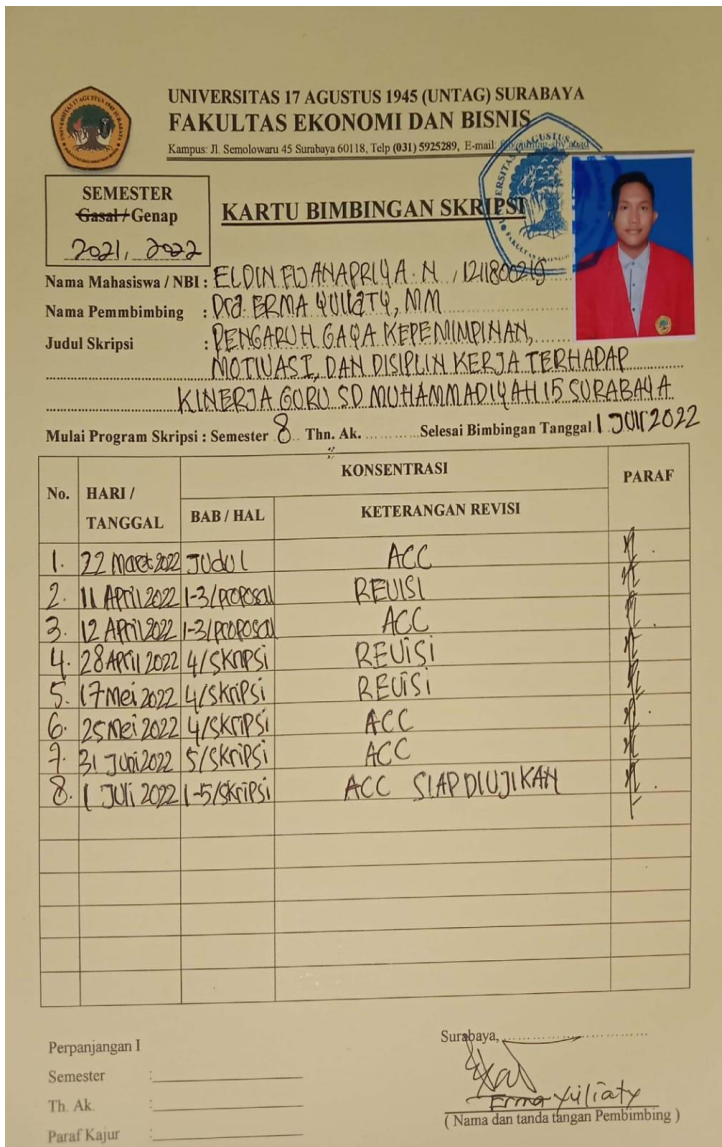 UNIVERSITAS 17 AGUSTUS 1945 (UNTAG) SURABAYA
FAKULTAS EKONOMI DAN BISNIS
Kampus: Jl. Semolowaru 45 Surabaya 60118, Telp (031) 5925289, E-mail:
SEMESTER
Gasal / Genap
2021, 2022
KARTU BIMBINGAN SKRIPSI
Nama Mahasiswa / NBI : ELDIN N , 1211800219
Nama Pemmbimbing : Dra. ERMA YULIATY, MM
Judul Skripsi : PENGARUH GAYA KEPEMIMPINAN,
MOTIVASI, DAN DISIPLIN KERJA TERHADAP
KINERJA GURU SD MUHAMMADIYAH 15 SURABAYA
Mulai Program Skripsi : Semester 8 Thn. Ak. ............ Selesai Bimbingan Tanggal 1 JULI 2022
No. HARI / TANGGAL KONSENTRASI PARAF
BAB / HAL KETERANGAN REVISI
1. 22 Maret 2022 JUDUL ACC
2. 11 APRIL 2022 1-3/PROPOSAL REVISI
3. 12 APRIL 2022 1-3/PROPOSAL ACC
4. 28 APRIL 2022 4/SKRIPSI REVISI
5. 17 Mei 2022 4/SKRIPSI REVISI
6. 25 Mei 2022 4/SKRIPSI ACC
7. 31 JUNI 2022 5/SKRIPSI ACC
8. 1 JULI 2022 1-5/SKRIPSI ACC SIAP DIUJIKAN
Perpanjangan I
Semester :
Th. Ak. :
Paraf Kajur :
Surabaya, ............
Erma Yuliaty
( Nama dan tanda tangan Pembimbing )